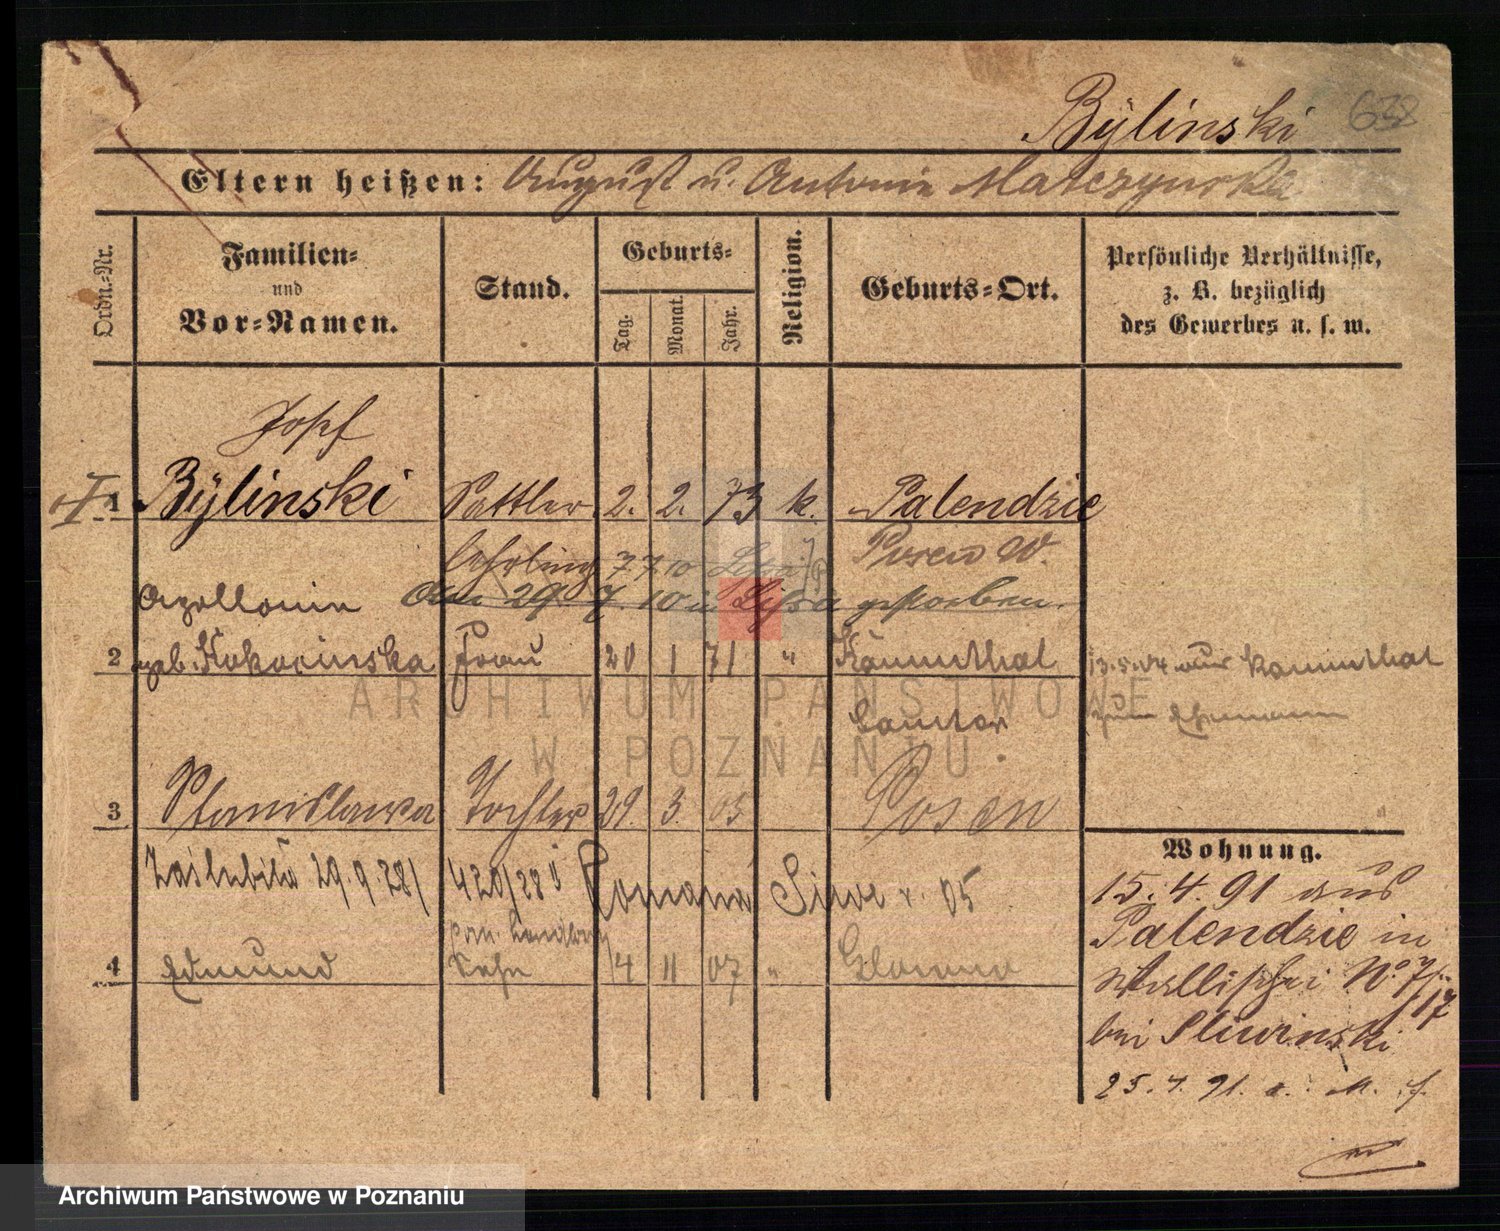 Bÿlinski 638
Eltern heißen: August u. Antonie Matczynska
Ordn.-Nr.
Familien-
und
Vor-Namen.
Stand.
Geburts-
Tag.
Monat.
Jahr.
Religion.
Geburts-Ort.
Persönliche Verhältnisse,
z. B. bezüglich
des Gewerbes u. s. w.
Josef
1 Bÿlinski Sattler 2. 2. 73 k. Palendzie
lehrling 7 7 10 Posen W.
29. 7. 10 in Lissa gestorben.
Apollonia
2 geb. Kokocinska Frau 20 1 71 " Kämmthal 13.5.04 aus Kammthal
Cantor zum Ehemann
ARCHIWUM PAŃSTWOWE
W POZNANIU
3 Stanislawa Tochter 29. 3. 05 Posen
Zaślubiła 29.9.28 420/28 Romana v. 05
4 Edmund Sohn 14 11 07 "
Wohnung.
15. 4. 91 aus
Palendzie in
Wallischei No 7
/17
bei Sliwinski
25. 4. 91. a. M. f.
Archiwum Państwowe w Poznaniu